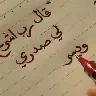 "قال رب اشرح
لي صدري
ويسر